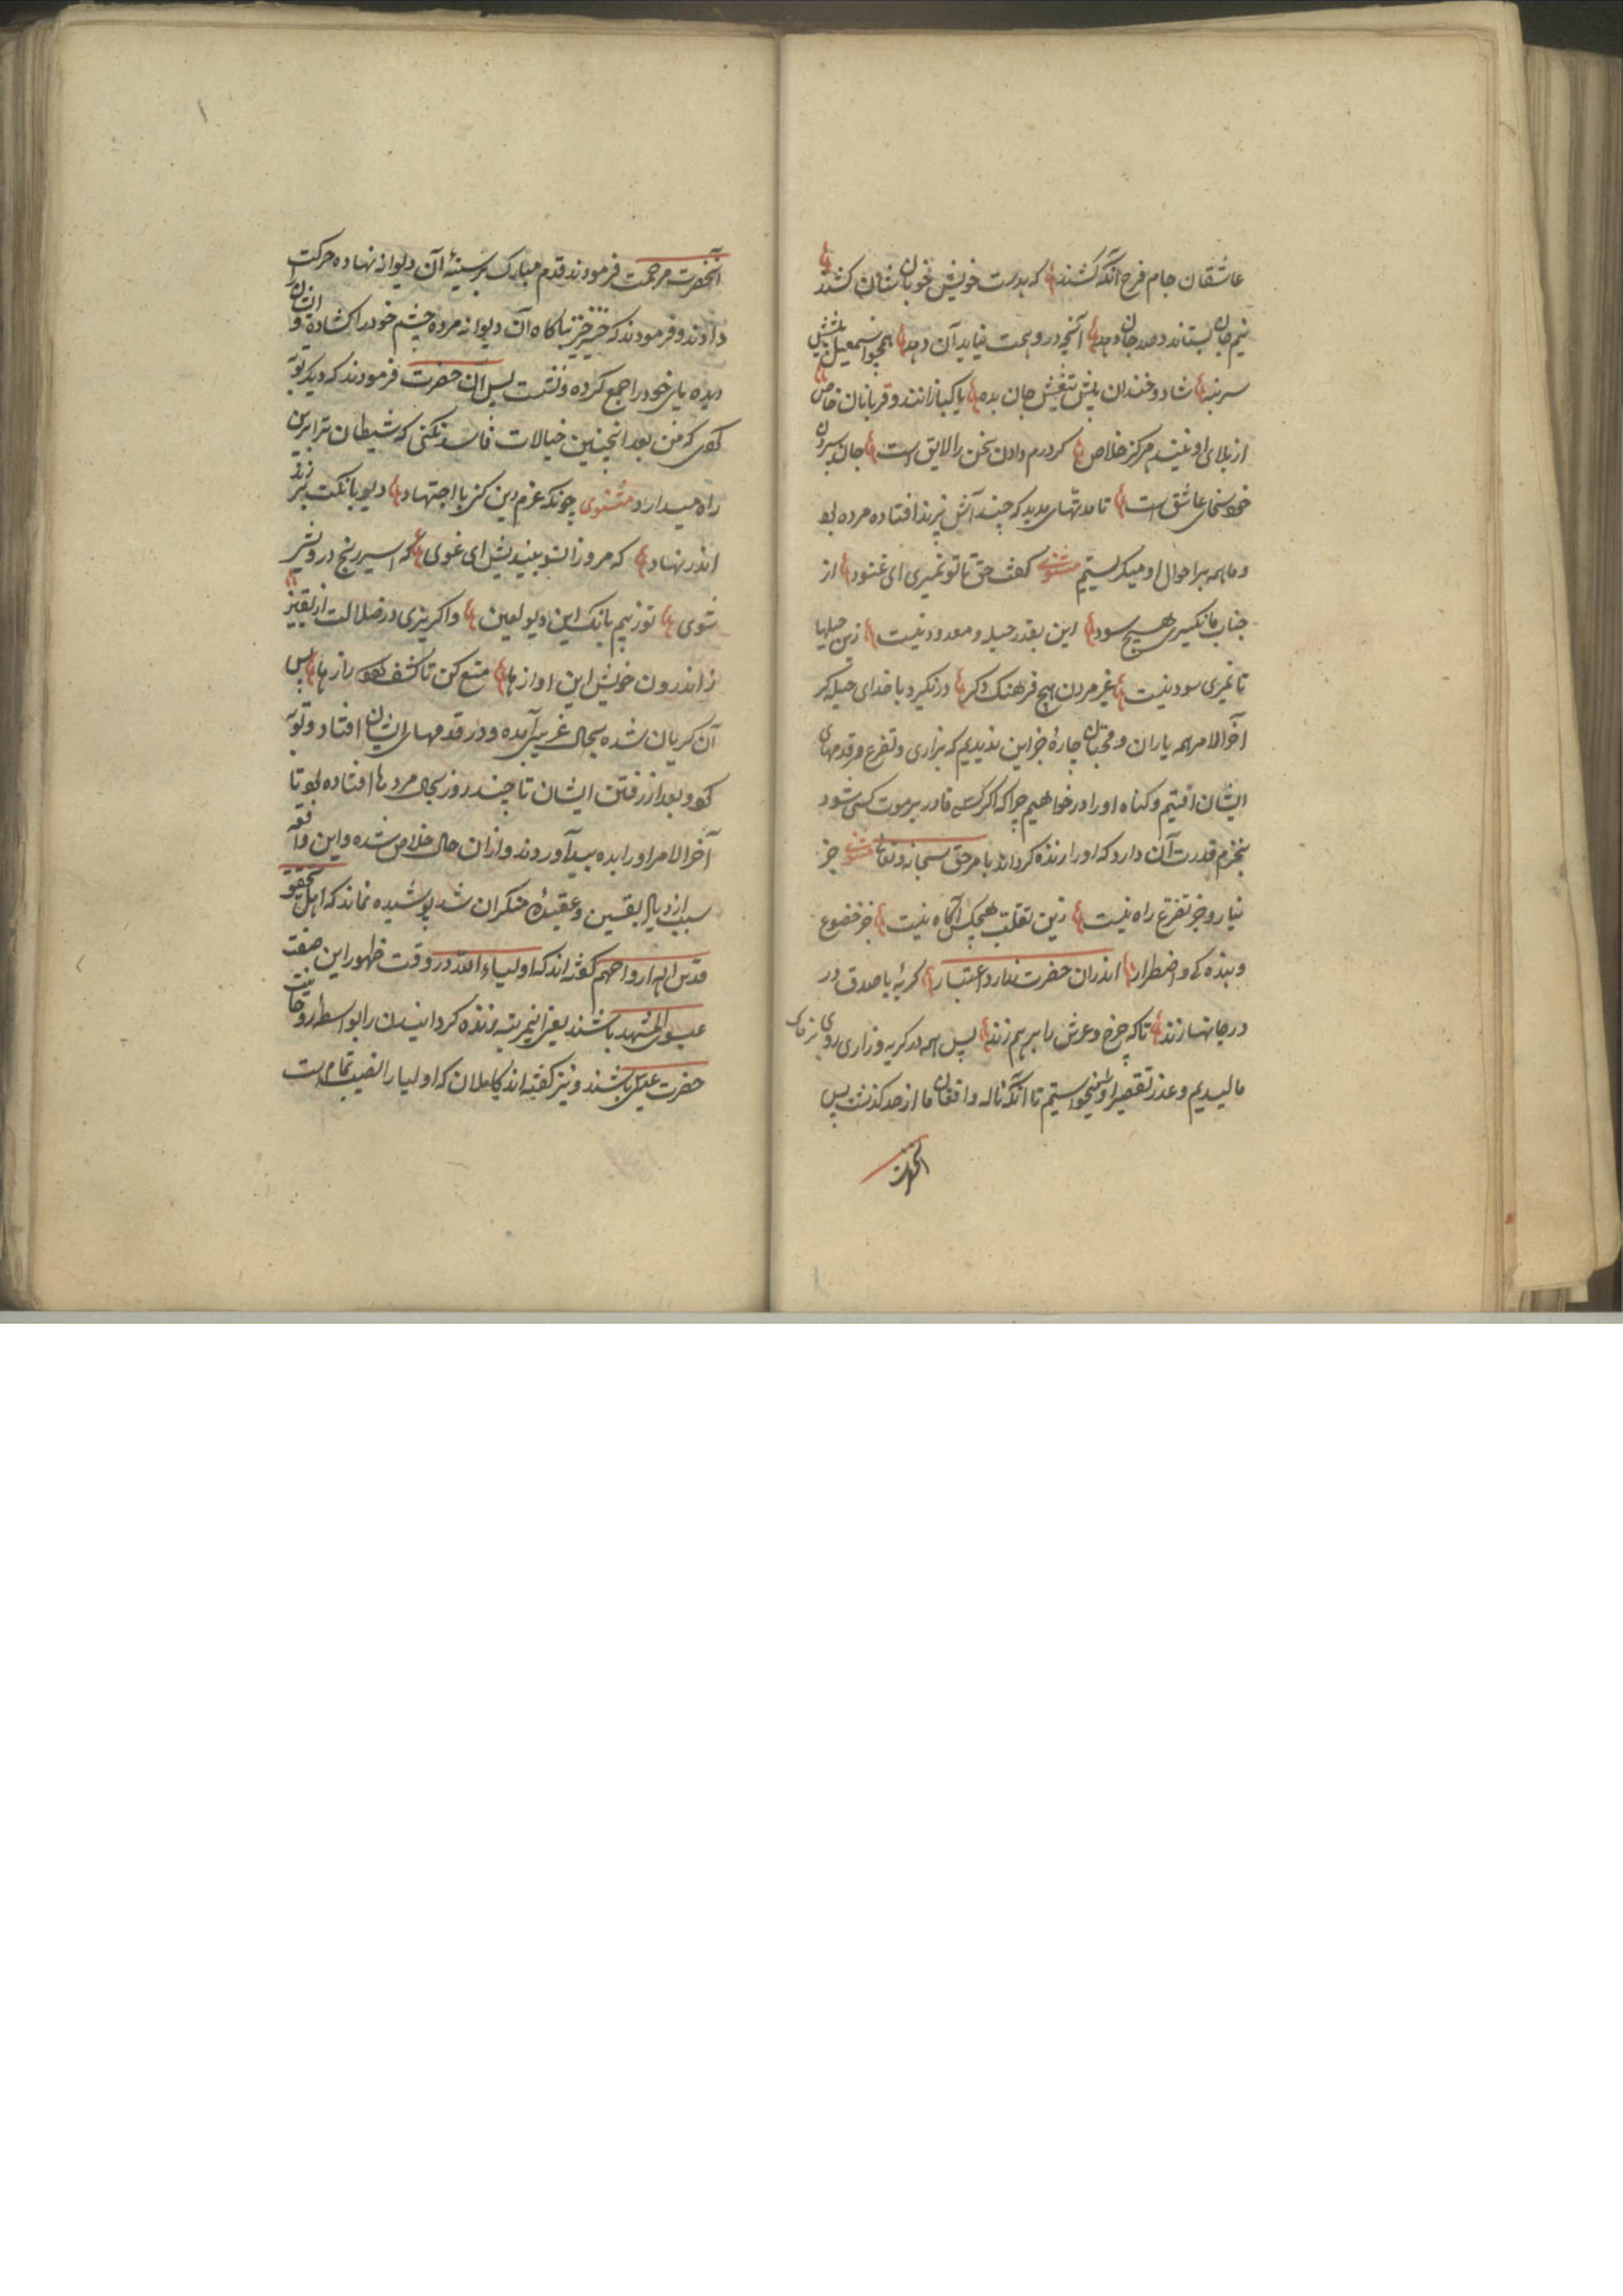 عاشقان جام فرح آنگه کشند که بدست خویش خوبان شان کشند
نیم جان بستاند و صد جان دهد آنچه در وهمت نیاید آن دهد همچو اسمعیل پیشش
سر بنه شاد و خندان پیش تیغش جان بده پاکبازانند و قربانان خاص
از بلای او نیند هرگز خلاص کردرم دادن سخن را لایق است جان سپردن
خود سخای عاشق است تا مدتهای مدید که چند آش پزند افتاده مرده بود
و ما همه بر احوال او میکریستیم مثنوی گفت حق تا تو نمیری ای عنود از
جناب ما نگیری هیچ سود این بقدر حیله و معدود نیست زین حیلها
تا نمیری سود نیست غیر مردن هیچ فرهنگ دکر درنکیرد با خدای حیله کر
آخر الامر همه یاران و محبان چارهٔ جز این ندیدیم که بزاری و تضرع در قدمهای
ایشان افتیم و کناه او را درخواهیم چرا که اکر کسی قادر بر موت کسی شود
بنجزم قدرت آن دارد که او را زنده کرداند بامر حق سبحانه و تعالی مثنوی جز
نیاز و جز تضرع راه نیست زین تقلب هیچکس آگاه نیست جز خضوع
و بنده کی و اضطرار اندران حضرت ندارد اعتبار کریهٔ با صدق در
در جانها زند تا که چرخ و عرش را بر هم زند پس همه در کریه و زاری روی بر خاک
مالیدیم و عذر تقصیر او میخواستیم تا آنکه ناله و افغان ما از حد کذشت پس
آنحضرت
آنحضرت مرحمت فرمودند قدم مبارک بر سینهٔ آن دیوانه نهاده حرکت
دادند و فرمودند که خیز خیز ناکاه آن دیوانه مرده چشم خود را کشاده و ایشان را
دیده پای خود را جمع کرده و نشست پس آن حضرت فرمودند که دیکر توبه
کوی که من بعد اینچنین خیالات فاسد نکنی که شیطان ترا برین
راه میدارد مثنوی چونکه عزم دین کنی با اجتهاد دیو بانکت بر زند
اندر نهاد که مرو زانسو بیندیش ای غوی که اسیر رنج و درویشی
شوی تو ز بیم بانک این دیو لعین واکریزی در ضلالت از یقین
ز اندرون خویش این اوازها منع کن تا کشف کردد رازها پس
آن کریان شده بحال غریبی آمده و در قدمهای ایشان افتاد و توبه
کرد و بعد از رفتن ایشان تا چند روز بحال مردها افتاده بود تا
آخر الامر او را بده بید آوردند و ازان حال خلاص شده و این واقعه
سبب ازدیاد یقین و عقیدهٔ منکران شد پوشیده نماند که اهل تحقیق
قدس الله ارواحهم کفته اند که اولیاء الله در وقت ظهور این صفت
عیسوی المشهد باشند یعنی این مرتبه زنده کردانیدن را بواسطهٔ روحانیت
حضرت عیسی باشند و نیز کفته اند کاملان که اولیا را نصیب تمام است